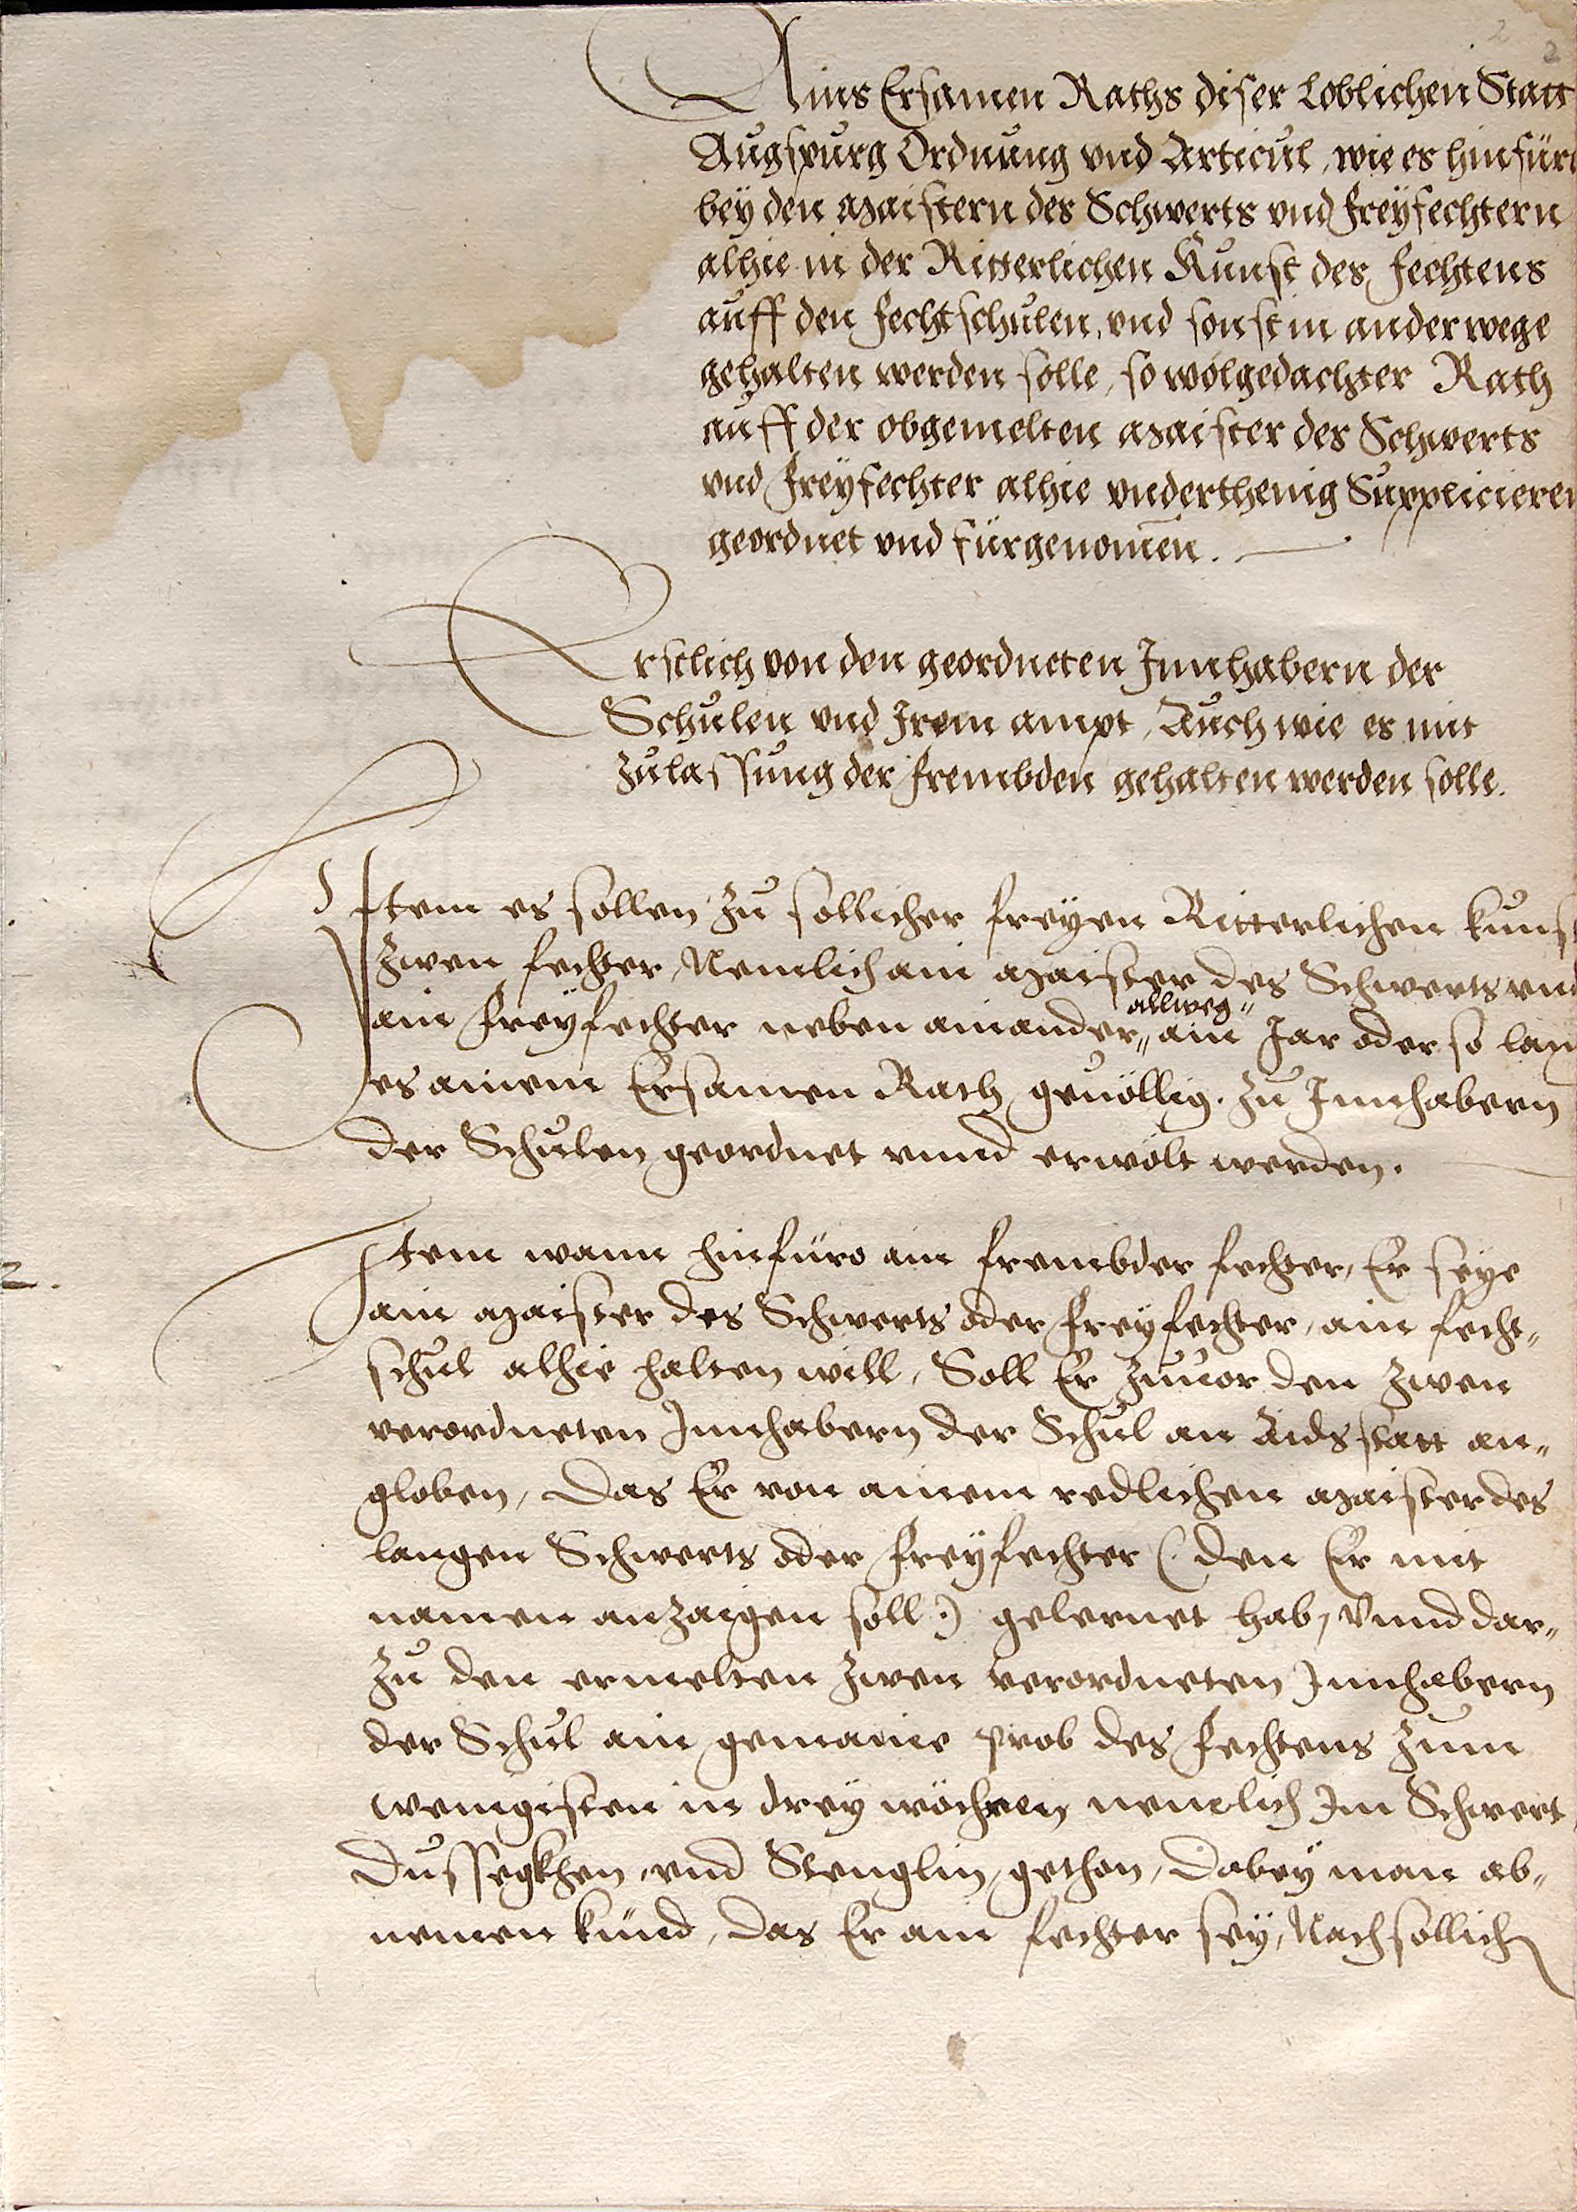 2 2
Ains Ersamen Raths diser Loblichen Statt
Augspurg Ordnung vnd Articul, wie es hinfüro
bey den Maistern des Schwerts vnd Freyfechtern
alhie in der Ritterlichen Kunst des Fechtens
auff den Fechtschulen, vnd sonst in ander wege
gehalten werden solle, so wolgedachter Rath
auff der obgemelten Maister des Schwerts
vnd Freyfechter alhie vnderthenig Supplicieren
geordnet vnd fürgenomēn.
Erstlich von den geordneten Innhabern der
Schulen vnd Irem ampt, Auch wie es mit
Zulassung der Frembden gehalten werden solle.
Item es sollen zu sollicher freyen Ritterlichen kunst
zwen fechter, Nemlich ain Maister des Schwerts vnd
allweg"
ain Freyfechter neben ainander" ain Jar oder so lang
es ainem Ersamen Rath geuöllig. Zu Innhabern
der Schulen geordnet vnnd erwölt werden.
2.
Item wann hinfüro ain frembder fechter, Er seye
ain Maister des Schwerts oder Freyfechter, ain fecht„
schul alhie halten will, Soll Er zuuor den zwen
verordneten Innhabern der Schul an Aids statt an„
globen, Das Er von ainem redlichen Maister des
langen Schwerts oder Freyfechter (: den Er mit
namen anzaigen soll :) gelernet hab, Vnnd dar„
zu den ermelten zwen verordneten Innhabern
der Schul ain gemaine prob des Fechtens zum
wenigisten in drey wöhren, nemlich Im Schwert,
Dussegkhen, vnd Stenglin, gethon, Dabey man ab„
nemen künd, das Er ain fechter sey, Nach sollich